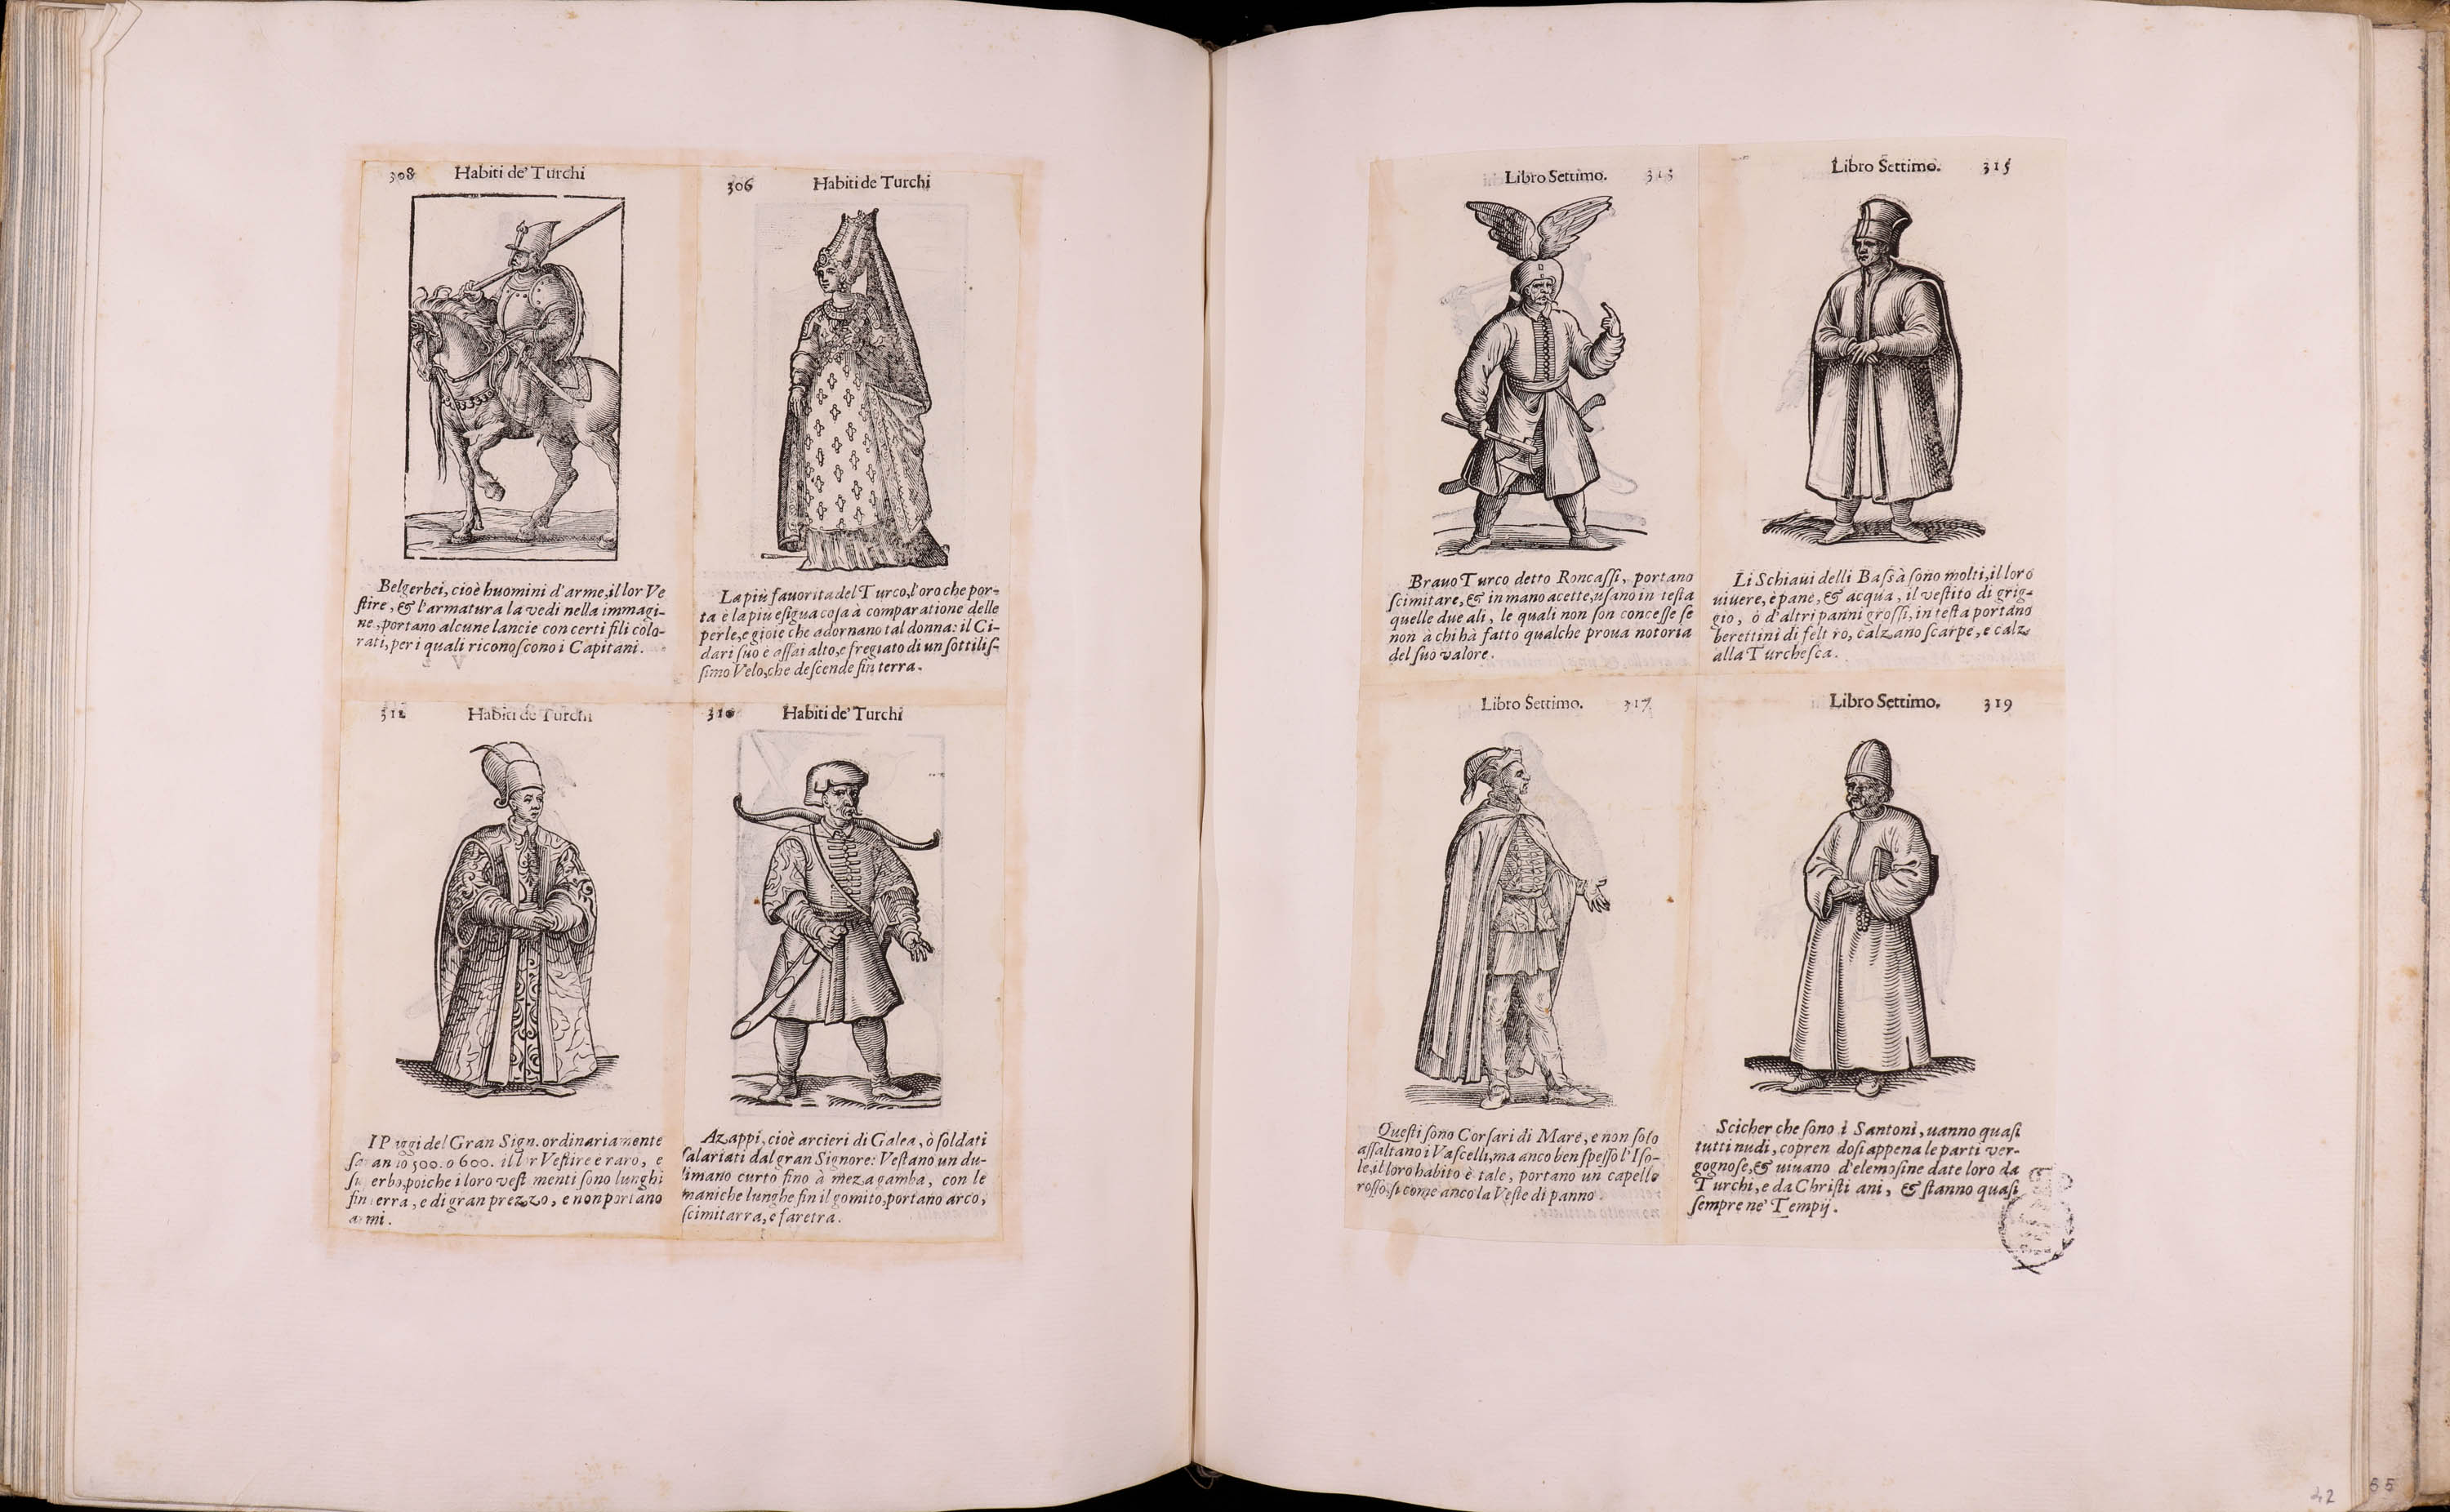 308 Habiti de' Turchi
Belgerbei, cioè huomini d'arme, il lor Ve
ſtire, & l'armatura la vedi nella immagi-
ne, portano alcune lancie con certi fili colo-
rati, per i quali riconoſcono i Capitani.
306 Habiti de Turchi
La più fauorita del Turco, l'oro che por-
ta è la più eſigua coſa à comparatione delle
perle, e gioie che adornano tal donna: il Ci-
dari ſuo è aſſai alto, e fregiato di un ſottiliſ-
ſimo Velo, che deſcende fin terra.
312 Habiti de Turchi
I P aggi del Gran Sign. ordinariamente
ſaran io 500. o 600. il lor Veſtire e raro, e
ſu erbo, poiche i loro veſt menti ſono lunghi
fin terra, e di gran prezzo, e non portano
armi.
310 Habiti de' Turchi
Azappi, cioè arcieri di Galea, ò ſoldati
ſalariati dal gran Signore: Veſtano un du-
limano curto fino à meza gamba, con le
maniche lunghe fin il gomito, portano arco,
ſcimitarra, e faretra.
Libro Settimo.
Brauo Turco detto Roncaſſi, portano
ſcimitare, & in mano acette, uſano in teſta
quelle due ali, le quali non ſon conceſſe ſe
non à chi hà fatto qualche proua notoria
del ſuo valore.
Libro Settimo. 315
Li Schiaui delli Baſsà ſono molti, il loro
uiuere, è pane, & acqua, il veſtito di grig-
gio, ò d'altri panni groſſi, in teſta portano
berettini di feltro, calzano ſcarpe, e calze
alla Turcheſca.
Libro Settimo. 317
Queſti ſono Corſari di Mare, e non ſolo
aſſaltano i Vaſcelli, ma anco ben ſpeſſo l'Iſo-
le, il loro habito è tale, portano un capello
roſſo, ſi come anco la Veſte di panno.
Libro Settimo. 319
Scicher che ſono i Santoni, uanno quaſi
tutti nudi, copren doſi appena le parti ver-
gognoſe, & uiuano d'elemoſine date loro da
Turchi, e da Chriſti ani, & ſtanno quaſi
ſempre ne Tempij.
42
65